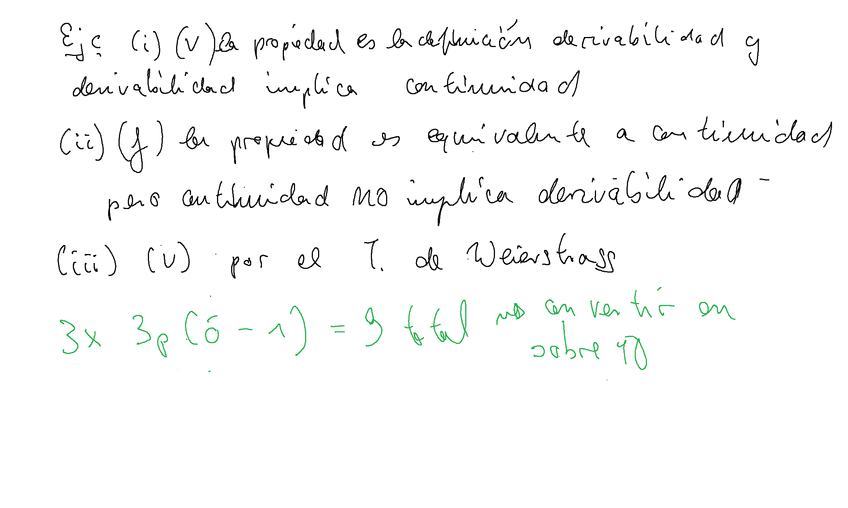 Ejc (i) (V) la propiedad es la definición derivabilidad y
derivabilidad implica continuidad
(ii) (f) la propiedad es equivalente a continuidad
pero continuidad no implica derivabilidad
(iii) (V) por el T. de Weierstrass
3x 3p (ó -1) = 9 total → convertir en
sobre 10